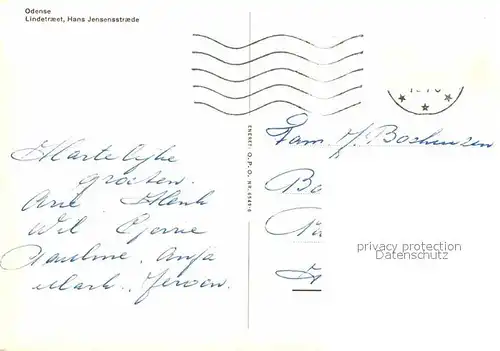 Odense
Lindetræet, Hans Jensensstræde
Hartelijke
groeten.
Arie Henk
Wil Corrie
Pauline. Anja
Mark. Jeroen.
ENERET: O.P.O.
Fam.
Bo
privacy protection
Datenschutz